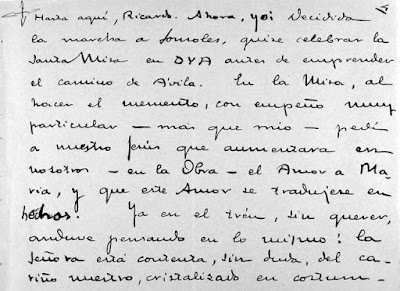 Hasta aquí, Ricardo. Ahora, yo: Decidida
la marcha a Sonsoles, quise celebrar la
Santa Misa en DYA antes de emprender
el camino de Ávila. En la Misa, al
hacer el memento, con empeño muy
particular — más que mío — pedí
a nuestro Jesús que aumentara en
nosotros — en la Obra — el Amor a Ma-
ría, y que este Amor se tradujese en
hechos. Ya en el trén, sin querer,
anduve pensando en lo mismo: la
Señora está contenta, sin duda, del ca-
riño nuestro, cristalizado en costum-